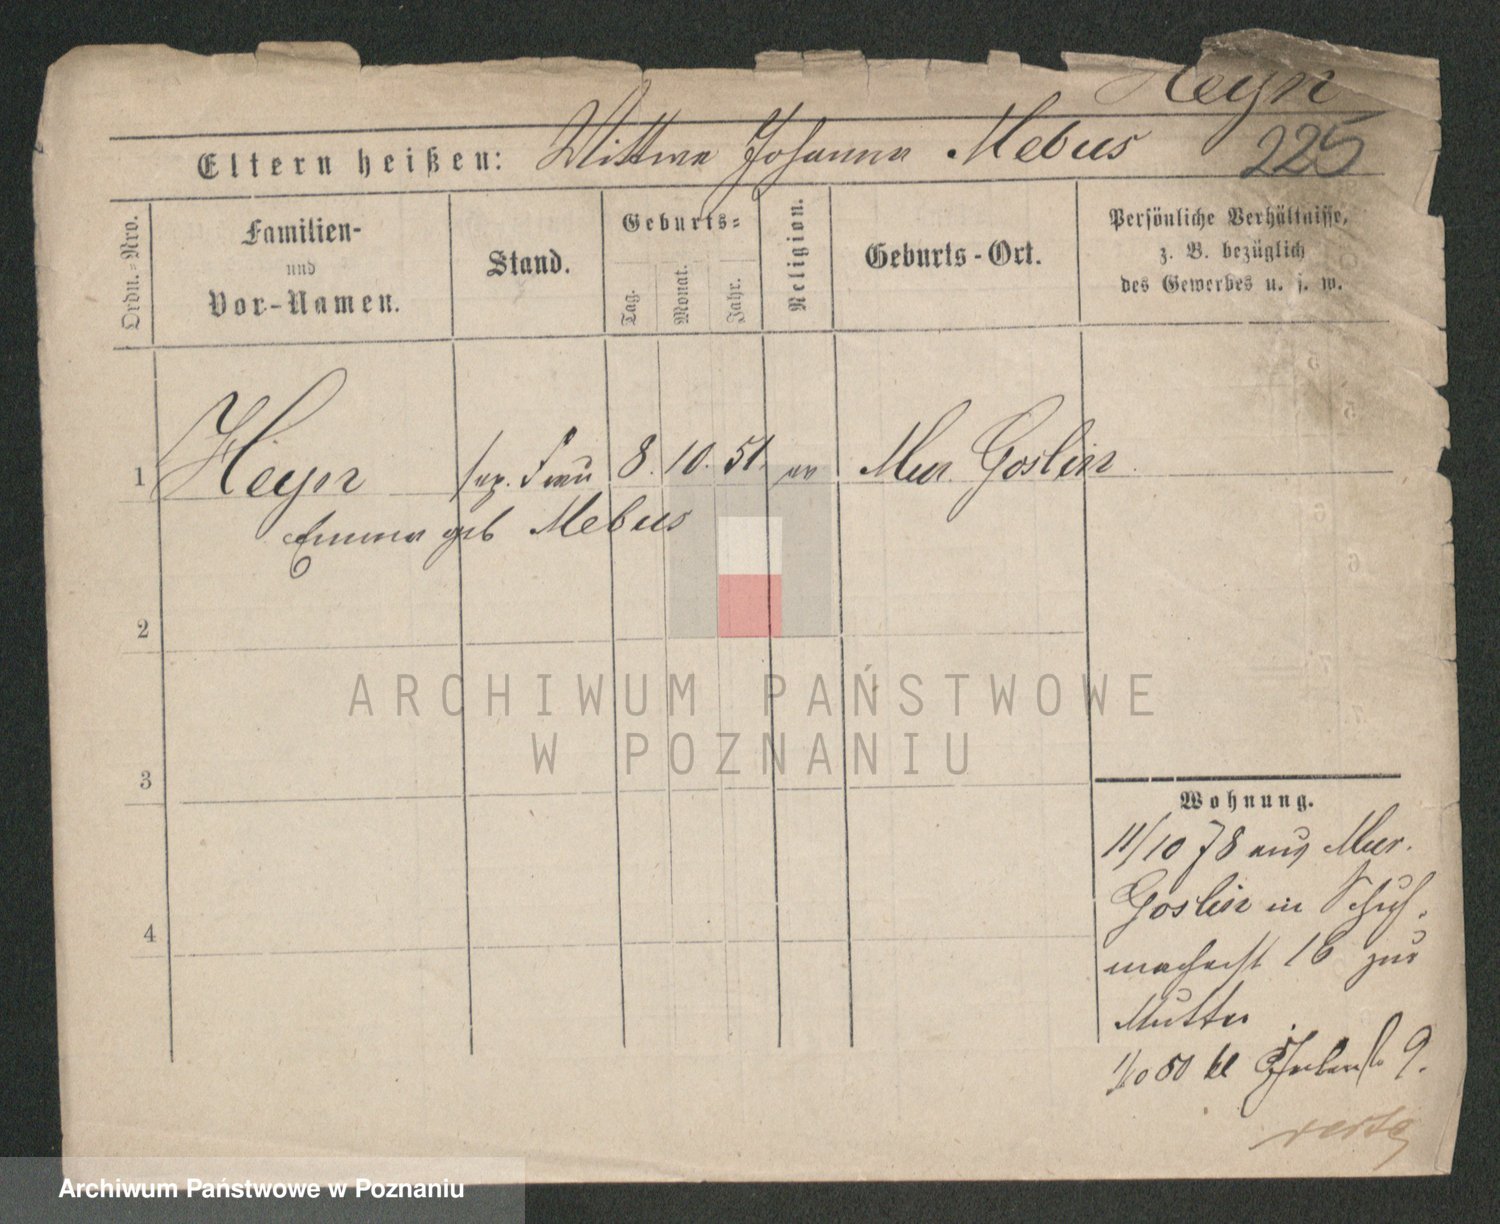 Heyn
Eltern heißen: Wittwe Johanna Mebus 225
Ordn.-Nro.
Familien-
und
Vor-Namen.
Stand.
Geburts-
Tag.
Monat.
Jahr.
Religion.
Geburts-Ort.
Persönliche Verhältnisse,
z. B. bezüglich
des Gewerbes u. s. w.
1 Heyn sep. Frau 8. 10. 51. ev Mur. Goslin
Emma geb Mebus
2
3
4
ARCHIWUM PAŃSTWOWE
W POZNANIU
Wohnung.
11/10 78 aus Mur.
Goslin in Schuh-
macherst 16 zur
Mutter
1/10 80 kl 9.
verte
Archiwum Państwowe w Poznaniu